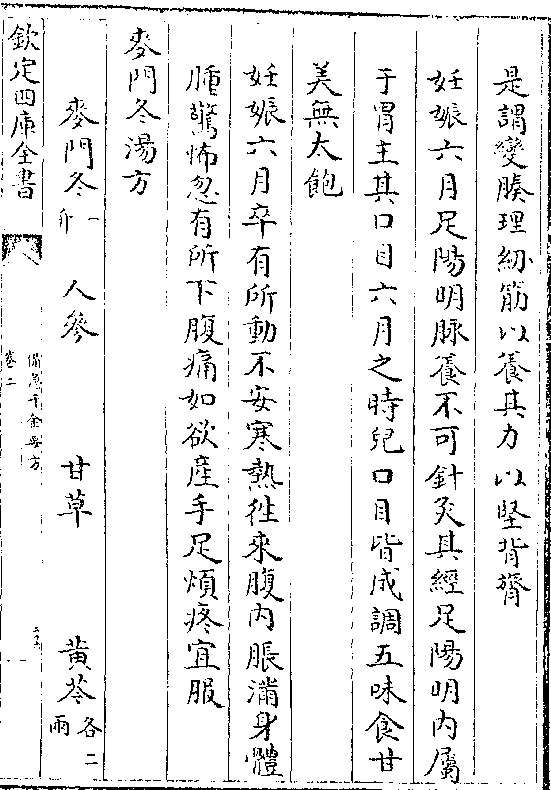 是謂變腠理紉筋以養其力以堅背膂
妊娠六月足陽明脉養不可針灸其經足陽明内屬
于胃主其口目六月之時兒口目皆成調五味食甘
美無太飽
妊娠六月卒有所動不安寒熱徃來腹内脹滿身體
腫驚怖忽有所下腹痛如欲産手足煩疼宜服
麥門冬湯方
麥門冬一斤 人參 甘草 黄芩各二兩
欽定四庫全書
備急千金要方
卷二